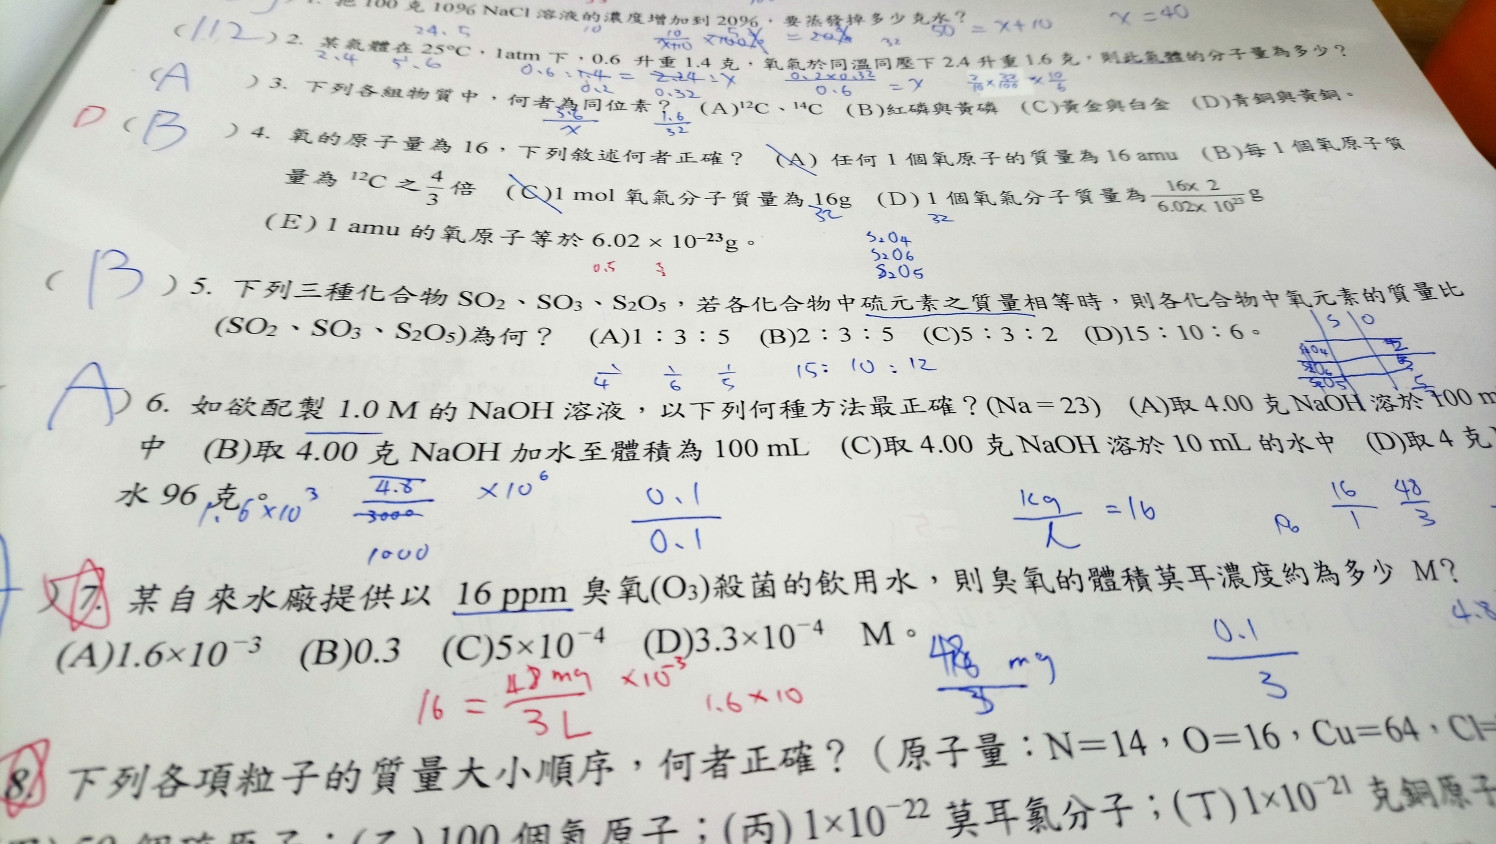 1. 把 100 克 10% NaCl 溶液的濃度增加到 20%，要蒸發掉多少克水？ = x+10 x=40
(112) 2. 某氣體在 25°C，1atm 下，0.6 升重 1.4 克，氧氣於同溫同壓下 2.4 升重 1.6 克，則此氣體的分子量為多少？
24.5
2.4 5.6
(A) 3. 下列各組物質中，何者為同位素？ (A)¹²C、¹⁴C (B)紅磷與黃磷 (C)黃金與白金 (D)青銅與黃銅。
D (B) 4. 氧的原子量為 16，下列敘述何者正確？ (A) 任何 1 個氧原子的質量為 16 amu (B)每 1 個氧原子質
量為 ¹²C 之 4/3 倍 (C)1 mol 氧氣分子質量為 16g (D) 1 個氧氣分子質量為 16x 2/6.02x 10²³ g
32 32
(E) 1 amu 的氧原子等於 6.02 × 10⁻²³g。
S₂O₄
S₂O₆
S₂O₅
0.5
(B) 5. 下列三種化合物 SO₂、SO₃、S₂O₅，若各化合物中硫元素之質量相等時，則各化合物中氧元素的質量比
(SO₂、SO₃、S₂O₅)為何？ (A)1：3：5 (B)2：3：5 (C)5：3：2 (D)15：10：6。
S O
1/4 1/6 1/5 15: 10 : 12
(A) 6. 如欲配製 1.0 M 的 NaOH 溶液，以下列何種方法最正確？(Na=23) (A)取 4.00 克 NaOH 溶於 100 m
中 (B)取 4.00 克 NaOH 加水至體積為 100 mL (C)取 4.00 克 NaOH 溶於 10 mL 的水中 (D)取 4 克
水 96 克。
1.6×10³ 4.8/3000 ×10⁶ 0.1/0.1 kg/L =16 16/1 48/3
1000
7. 某自來水廠提供以 16 ppm 臭氧(O₃)殺菌的飲用水，則臭氧的體積莫耳濃度約為多少 M？
(A)1.6×10⁻³ (B)0.3 (C)5×10⁻⁴ (D)3.3×10⁻⁴ M。
4.8
16 = 48 mg/3 L ×10⁻³ 1.6×10 mg 0.1/3
8. 下列各項粒子的質量大小順序，何者正確？（原子量：N=14，O=16，Cu=64，Cl=
100 個氮原子；(丙) 1×10⁻²² 莫耳氯分子；(丁) 1×10⁻²¹ 克銅原子